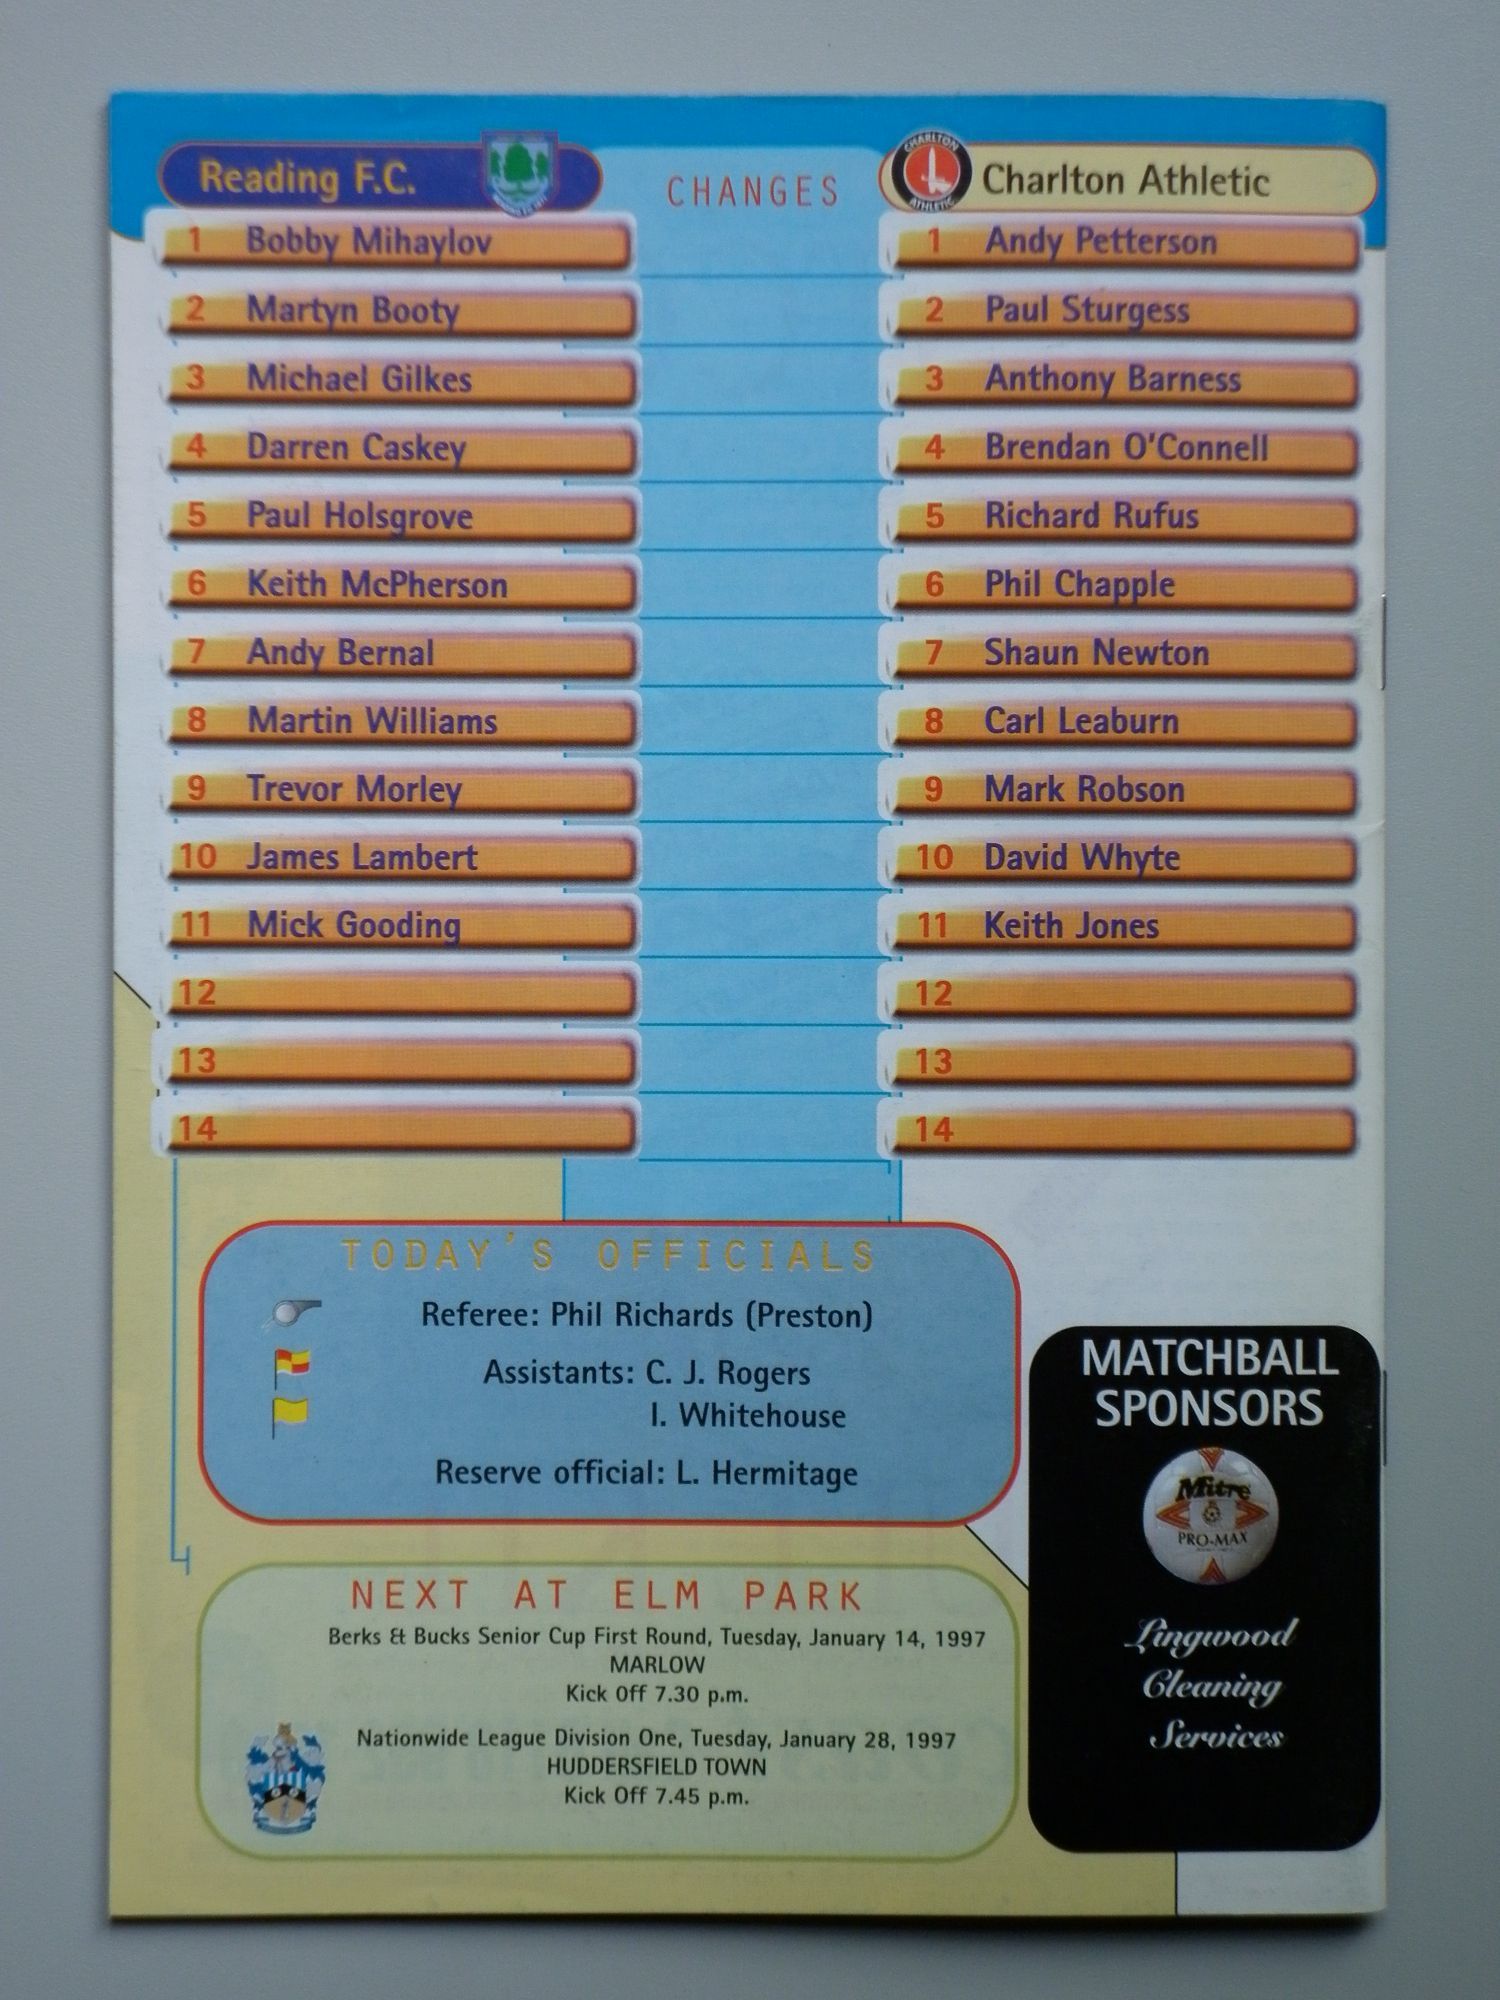 Reading F.C.
CHANGES
CHARLTON
ATHLETIC
Charlton Athletic
1 Bobby Mihaylov
2 Martyn Booty
3 Michael Gilkes
4 Darren Caskey
5 Paul Holsgrove
6 Keith McPherson
7 Andy Bernal
8 Martin Williams
9 Trevor Morley
10 James Lambert
11 Mick Gooding
12
13
14
1 Andy Petterson
2 Paul Sturgess
3 Anthony Barness
4 Brendan O'Connell
5 Richard Rufus
6 Phil Chapple
7 Shaun Newton
8 Carl Leaburn
9 Mark Robson
10 David Whyte
11 Keith Jones
12
13
14
TODAY'S OFFICIALS
Referee: Phil Richards (Preston)
Assistants: C. J. Rogers
I. Whitehouse
Reserve official: L. Hermitage
NEXT AT ELM PARK
Berks & Bucks Senior Cup First Round, Tuesday, January 14, 1997
MARLOW
Kick Off 7.30 p.m.
Nationwide League Division One, Tuesday, January 28, 1997
HUDDERSFIELD TOWN
Kick Off 7.45 p.m.
MATCHBALL
SPONSORS
Mitre
PRO-MAX
Lingwood
Cleaning
Services